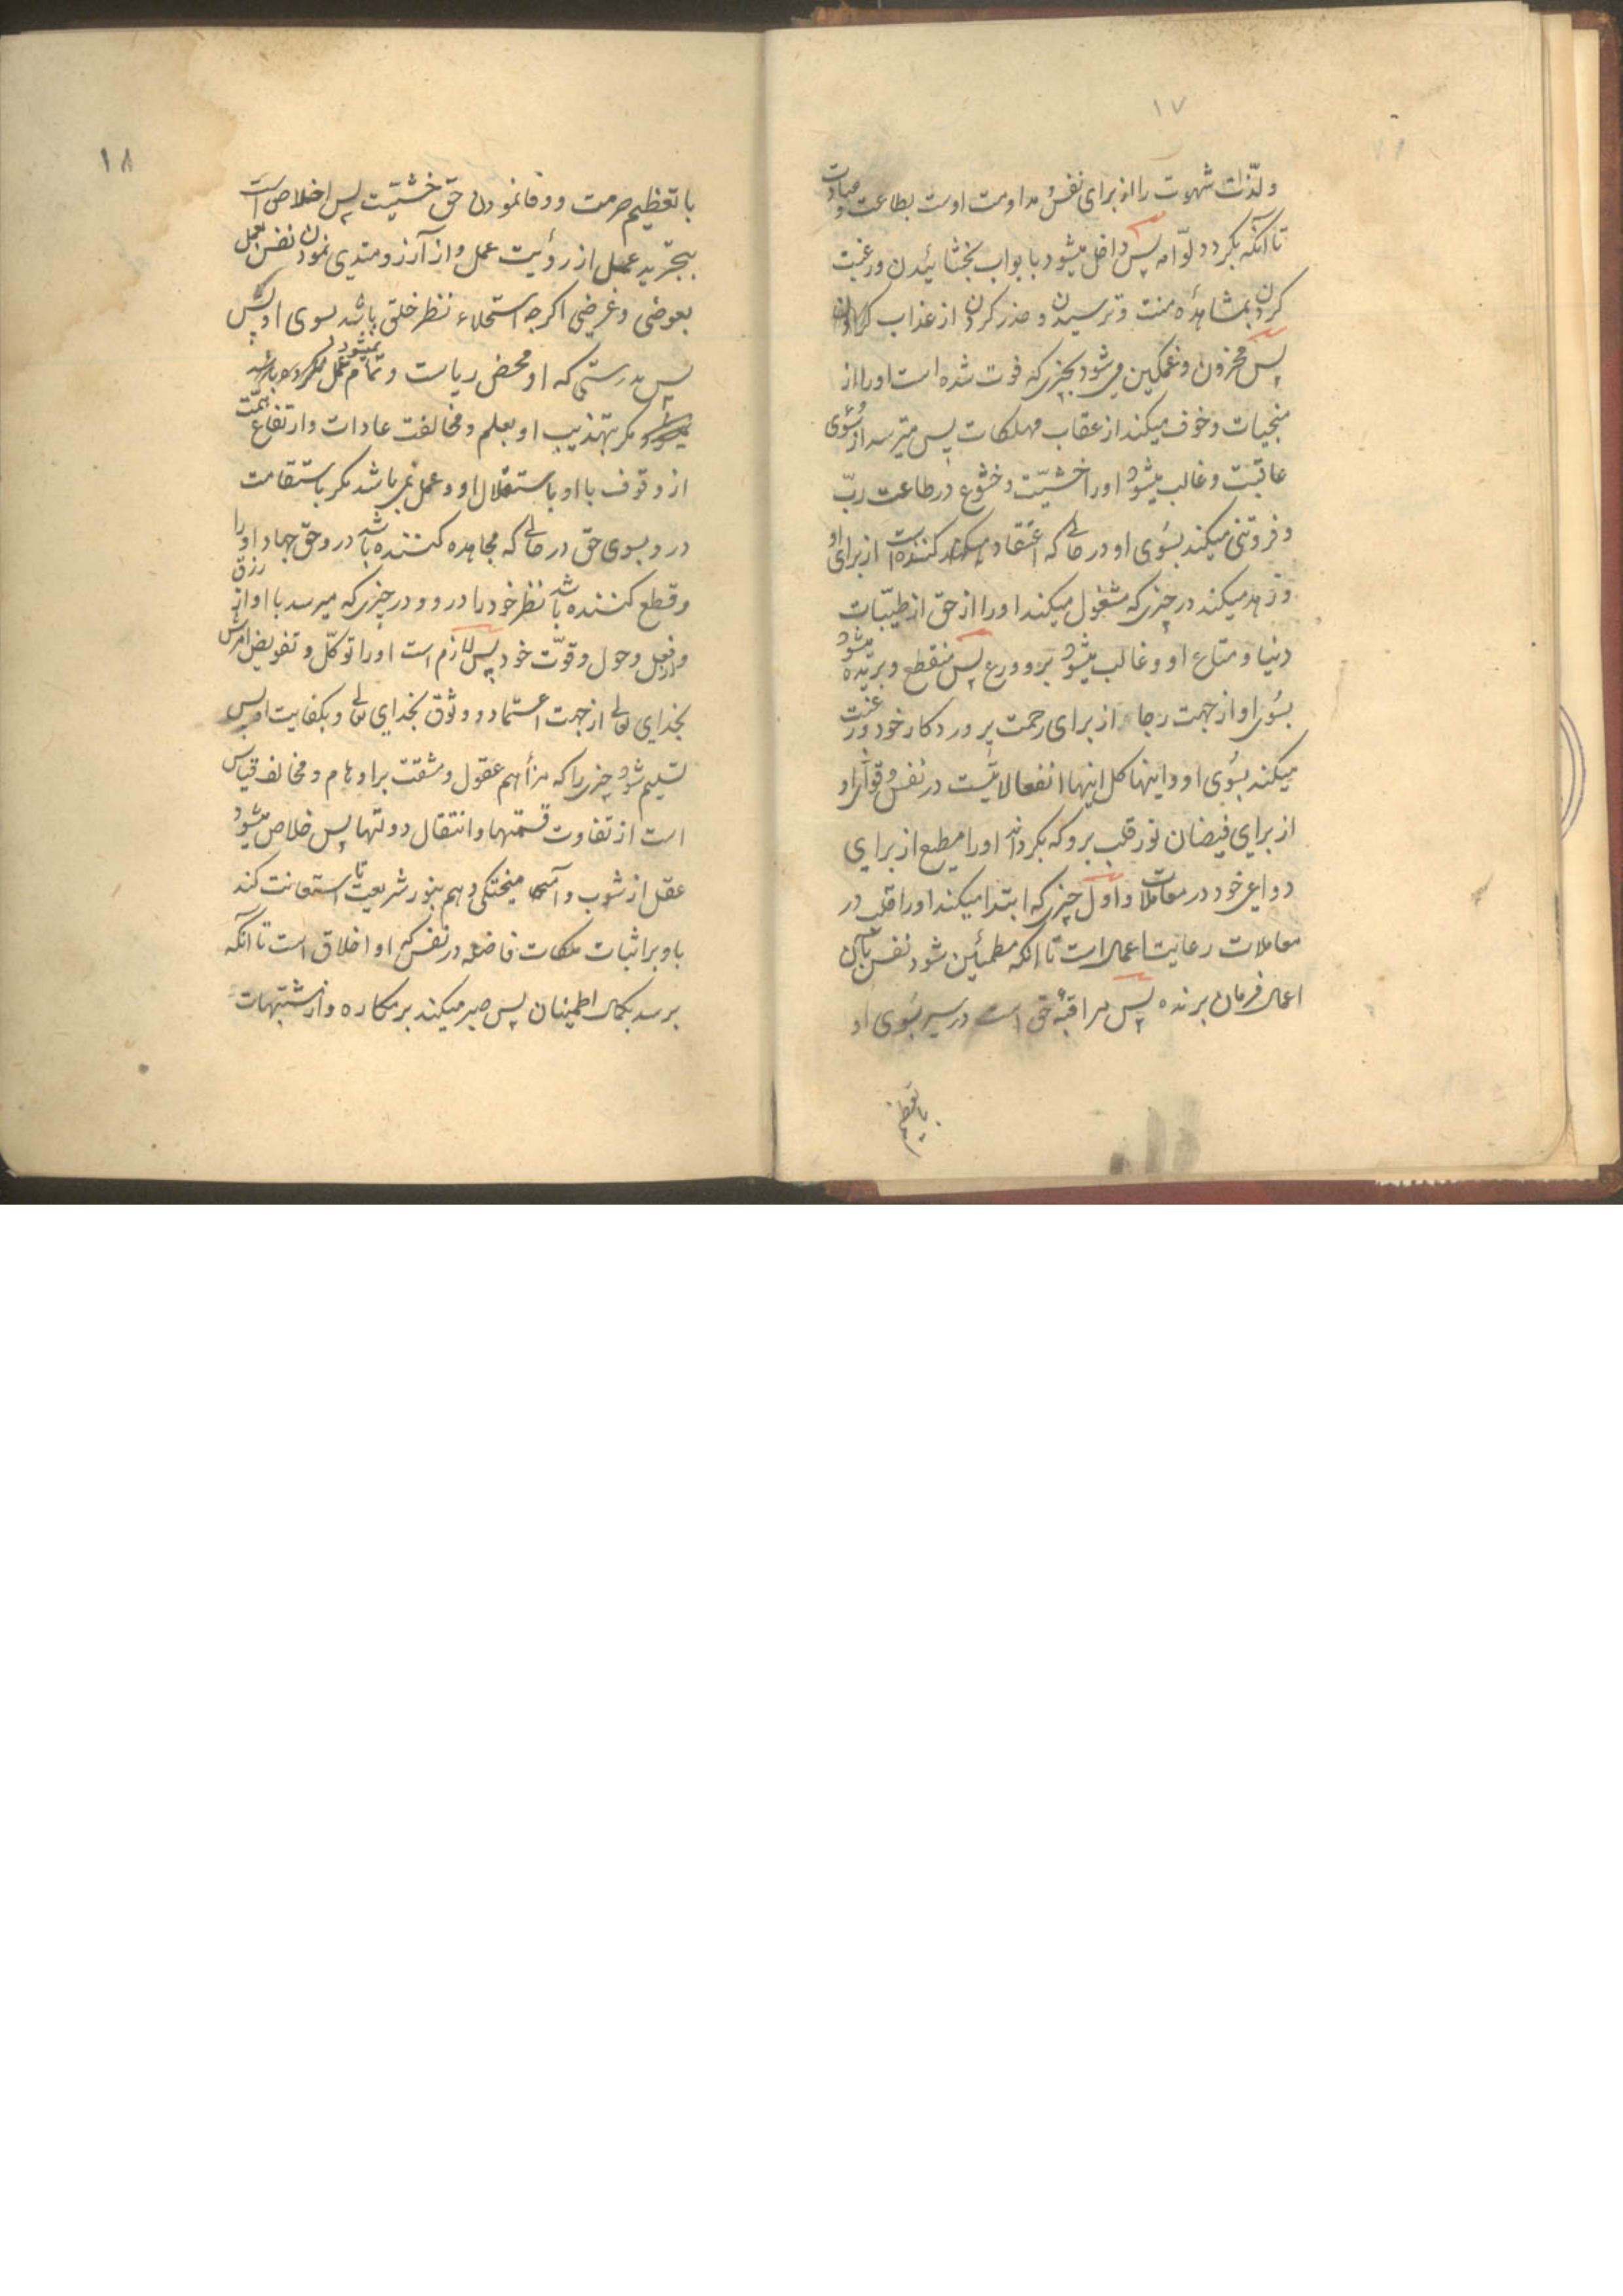 ۱۷
ولذّات شهوت را از برای نفس و مداومت اوست بطاعت و عبادت
تا آنکه بگردد لوّامه پس داخل میشود بابواب بخشائیدن و رغبت
کردن بمشاهدهٔ منت و ترسیدن و حذر کردن از عذاب
پس محزون و غمکین می شود بچیزی که فوت شده است او را از
منجیات و خوف میکند از عقاب مهلکات پس میترسد از سُوی
عاقبت و غالب میشود او را خشیّت و خشوع در طاعت ربّ
و فروتنی میکند بسُوی او در حالی که اعتقاد کننده است از برای او
و زهد میکند در چیزی که مشغول میکند او را از حق از طیّبات
دنیا و متاع او و غالب میشود برو ورع پس منقطع و بریده میشود
بسُوی او از جهت رجا از برای رحمت پروردکار خود و رغبت
میکند بسُوی او و اینها کل اینها انفعالاتیست در نفس و قوای او
از برای فیضان نور قلب برو که بکرداند او را مطیع از برای
دواعی خود در معاملات و اول چیزی که ابتدا میکند او را قلب در
معاملات رعایت اعمال است تا انکه مطمئین شود نفس بآن
اعمال فرمان برنده پس مراقبهٔ حق است در سیر بسُوی او
با تعظیم
۱۸
با تعظیم حرمت و وفا نمودن حق خشیّت پس اخلاص است
بتجرید عمل از رؤیت عمل و از آرزومندی نمودن نفس بعمل
بعوضی و غرضی اکرچه استحلاء نظر خلق باشد بسوی او
پس بدرستی که او محض ریاست و تمام نمیشود عمل
مکر بتهذیب او بعلم و مخالفت عادات و ارتفاع همّت
از وقوف با او باستقلال او و عمل نمی باشد مکر باستقامت
در و بسوی حق در حالی که مجاهده کننده باشد در و حق جهاد او را
و قطع کننده باشد نظر خود را در و و در چیزی که میرسد با او از رزق
و از فعل و حول و قوّت خود پس لازم است او را توکّل و تفویض امرش
بخدای تعالی از جهت اعتماد و وثوق بخدای تعالی و بکفایت امر پس
تسلیم شود چیزی را که مزاهم عقول و مشقت بر اوهام و مخالف قیاس
است از تفاوت قسمتها و انتقال دولتها پس خلاص میشود
عقل از شوب و آمیختکی وهم بنور شریعت تا استعانت کند
باو بر اثبات ملکات فاضله در نفس که او اخلاق است تا آنکه
برسد بکمال اطمینان پس صبر میکند بر مکاره و از مشتبهات